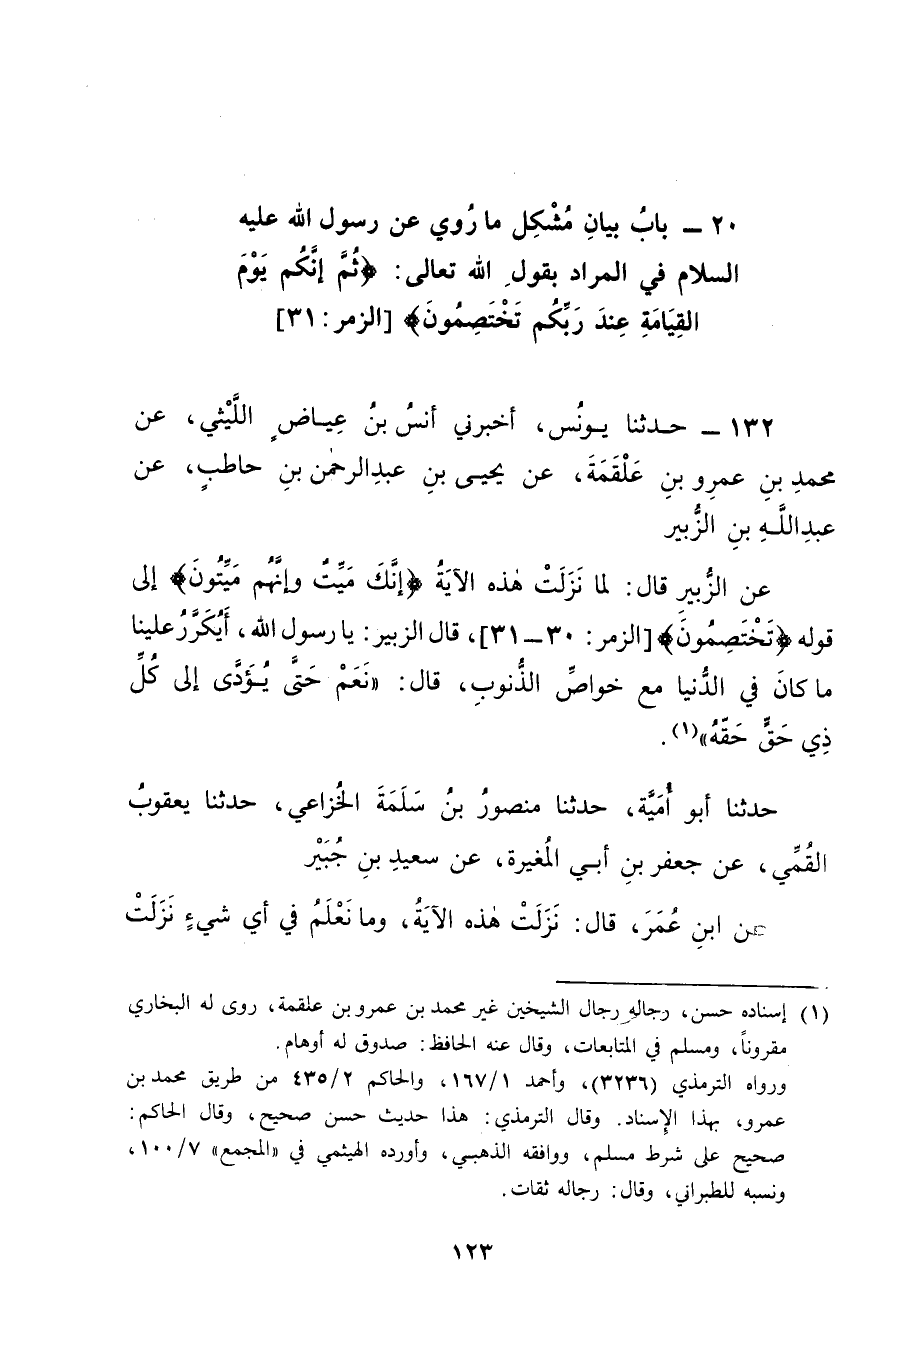 ٢٠ ــ بابُ بيانِ مُشْكِلِ ما رُوي عن رسول الله عليه
السلام في المراد بقولِ الله تعالى: ﴿ثُمَّ إنَّكُم يَوْمَ
القِيَامَةِ عِندَ رَبِّكُم تَخْتَصِمُونَ﴾ [الزمر: ٣١]
١٣٢ ــ حـدثنا يـونُس، أخبرني أنسُ بنُ عِيـاضٍ اللَّيْثي، عن
محمدِ بنِ عمرِو بنِ عَلْقَمَةَ، عن يحيـى بنِ عبدِالرحمٰن بنِ حاطبٍ، عن
عبدِاللَّـهِ بنِ الزُّبير
عن الزُّبير قال: لما نَزَلَتْ هٰذه الآيَةُ ﴿إنَّكَ مَيِّتٌ وإنَّهُم مَيِّتُونَ﴾ إلى
قوله ﴿تَخْتَصِمُونَ﴾ [الزمر: ٣٠ــ٣١]، قال الزبير: يا رسول الله، أَيُكَرَّرُ علينا
ما كانَ في الدُّنيا مع خواصِّ الذُّنوبِ، قال: «نَعَمْ حَتَّى يُـؤَدَّى إلى كُلِّ
ذِي حَقٍّ حَقّهُ»(١).
حدثنا أبو أُمَيَّة، حدثنا منصورُ بنُ سَلَمَةَ الخُزاعي، حدثنا يعقوبُ
القُمِّي، عن جعفر بنِ أبـي المُغيرة، عن سعيدِ بنِ جُبَيْر
عن ابنِ عُمَرَ، قال: نَزَلَتْ هٰذه الآيَةُ، وما نَعْلَمُ في أي شيءٍ نَزَلَتْ
(١) إسناده حسن، رجاله رجال الشيخين غير محمد بن عمرو بن علقمة، روى له البخاري
مقروناً، ومسلم في المتابعات، وقال عنه الحافظ: صدوق له أوهام.
ورواه الترمذي (٣٢٣٦)، وأحمد ١٦٧/١، والحاكم ٤٣٥/٢ من طريق محمد بن
عمرو، بهذا الإسناد. وقال الترمذي: هذا حديث حسن صحيح، وقال الحاكم:
صحيح على شرط مسلم، ووافقه الذهبـي، وأورده الهيثمي في «المجمع» ١٠٠/٧،
ونسبه للطبراني، وقال: رجاله ثقات.
١٢٣